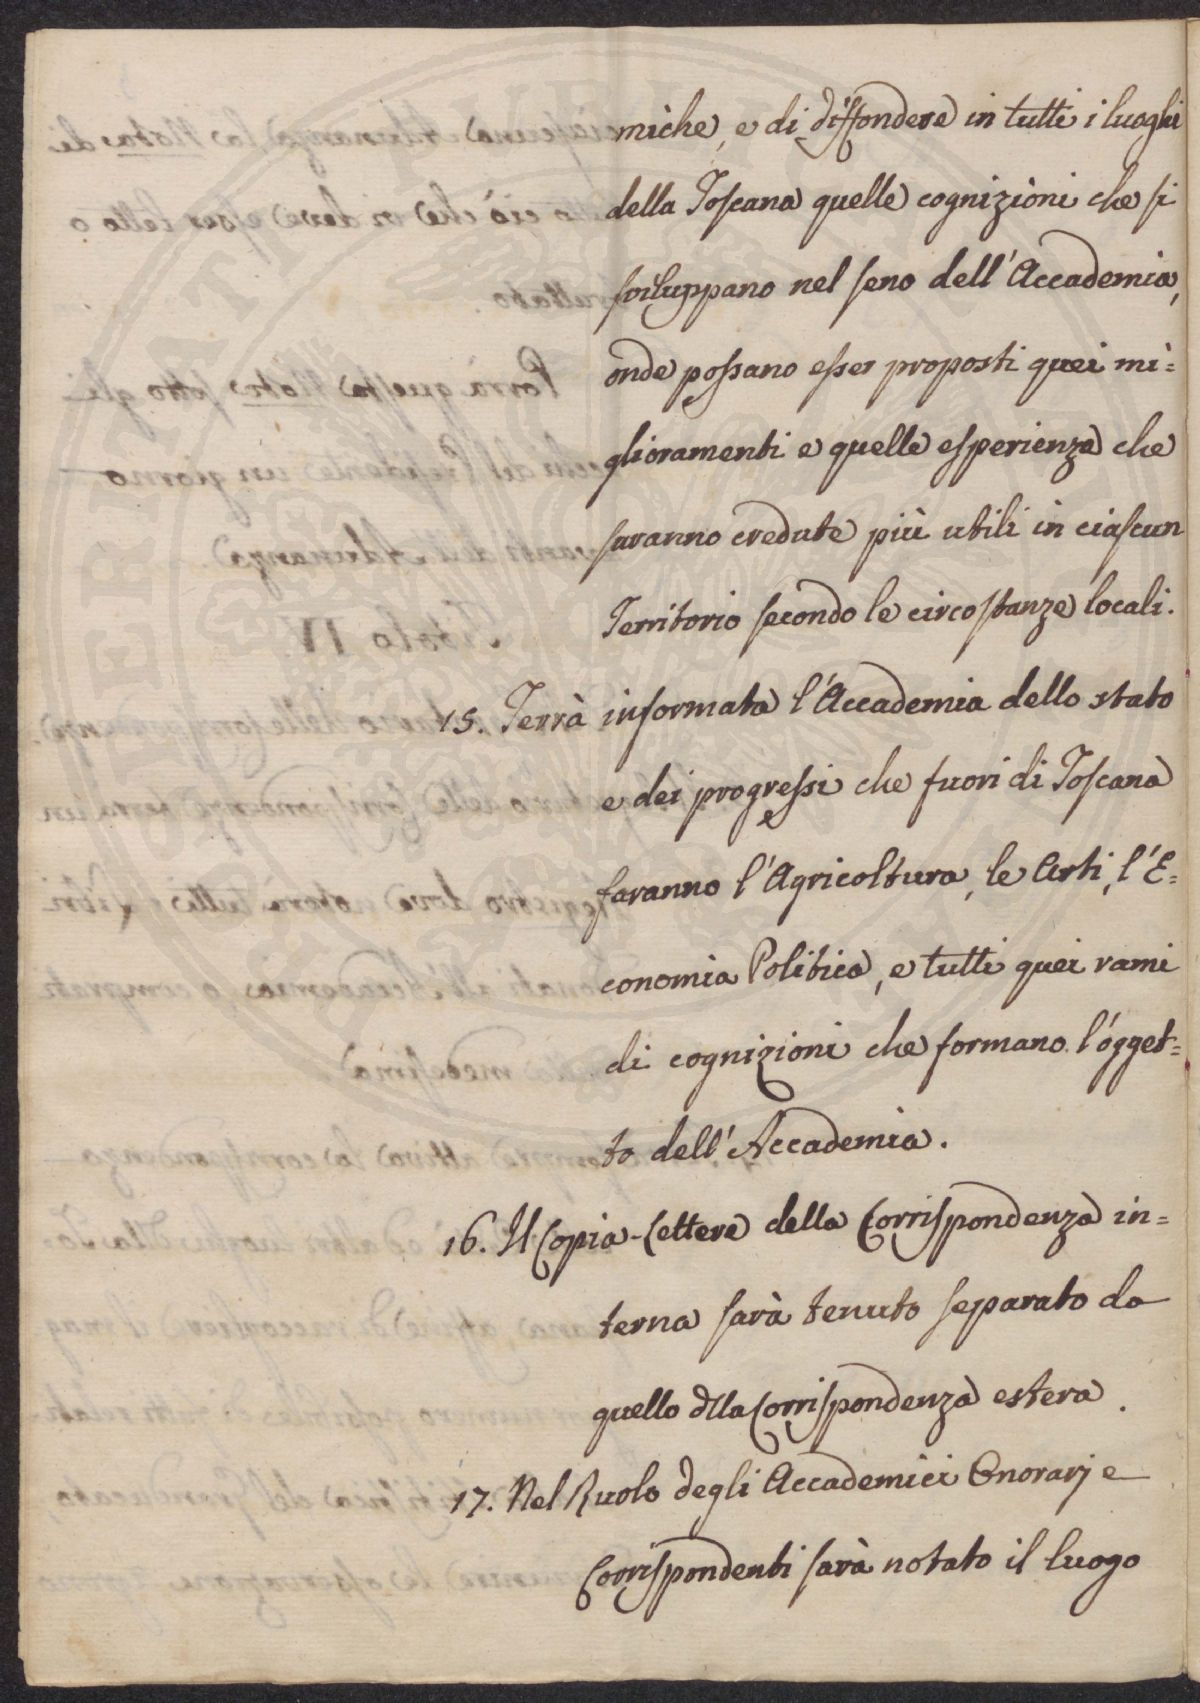 miche, e di diffondere in tutti i luoghi
della Toscana quelle cognizioni che si
sviluppano nel seno dell'Accademia,
onde possano esser proposti quei mi=
glioramenti e quelle esperienze che
saranno credute più utili in ciascun
Territorio secondo le circostanze locali.
15. Terrà informata l'Accademia dello stato
e dei progressi che fuori di Toscana
faranno l'Agricoltura, le Arti, l'E=
conomia Politica, e tutti quei rami
di cognizioni che formano l'ogget=
to dell'Accademia.
16. Il Copia-Lettere della Corrispondenza in=
terna sarà tenuto separato da
quello dlla Corrispondenza estera.
17. Nel Ruolo degli Accademici Onorarj e
Corrispondenti sarà notato il luogo